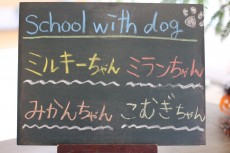 School with dog
ミルキーちゃん ミランちゃん
みかんちゃん こむぎちゃん